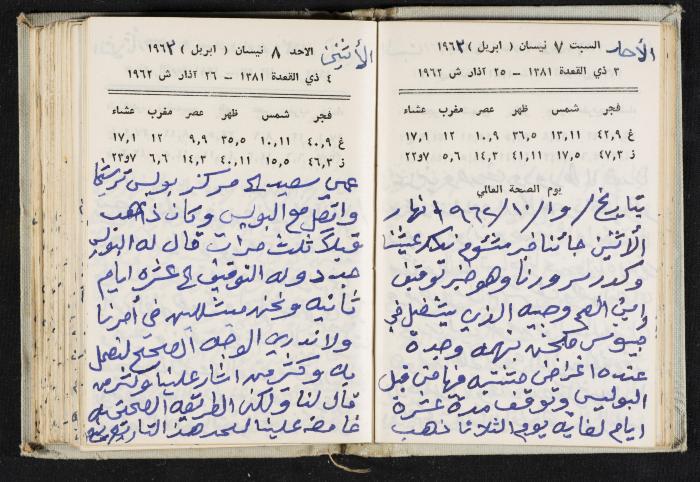 الأحد
السبت ٧ نيسان ( ابريل ) ١٩٦٣
٣ ذي القعدة ١٣٨١ – ٢٥ آذار ش ١٩٦٢
فجر شمس ظهر عصر مغرب عشاء
غ ٤٢,٩ ١٣,١١ ٣٦,٥ ١٠,٩ ١٢ ١٧,١
ز ٤٧,٣ ١٧,٥ ٤١,١١ ١٤,٣ ٥,٦ ٧و٢٣
يوم الصحة العالمي
بتاريخ نهار
الأثنين جائنا خبر مشئوم
وكدر سرورنا وهو خبر توقيف
وجيه الذي يشتغل في
بتهمة وجدة
عنده اغراض من قبل
البوليس وتوقف مدة عشرة
ايام لغاية يوم الثلاثاء ذهب
الأثنين
الاحد ٨ نيسان ( ابريل ) ١٩٦٣
٤ ذي القعدة ١٣٨١ – ٢٦ آذار ش ١٩٦٢
فجر شمس ظهر عصر مغرب عشاء
غ ٤٠,٩ ١٠,١١ ٣٥,٥ ٩,٩ ١٢ ١٧,١
ز ٤٦,٣ ١٥,٥ ٤٠,١١ ١٤,٣ ٦,٦ ٧و٢٣
عمي سعيد الى مركز بوليس ترشيحا
واتصل مع البوليس وكان ذاهب
قبلاً ثلث مرات قال له البوليس
جددوله التوقيف الى عشرة ايام
ثانيه ونحن في أمرنا
ولا ندري الوجه الصحيح لنعمل
به وكثر من اشار علينا وكثر من
قال لنا ولكن الطريقه
غامضه علينا لحد هذا التاريخ